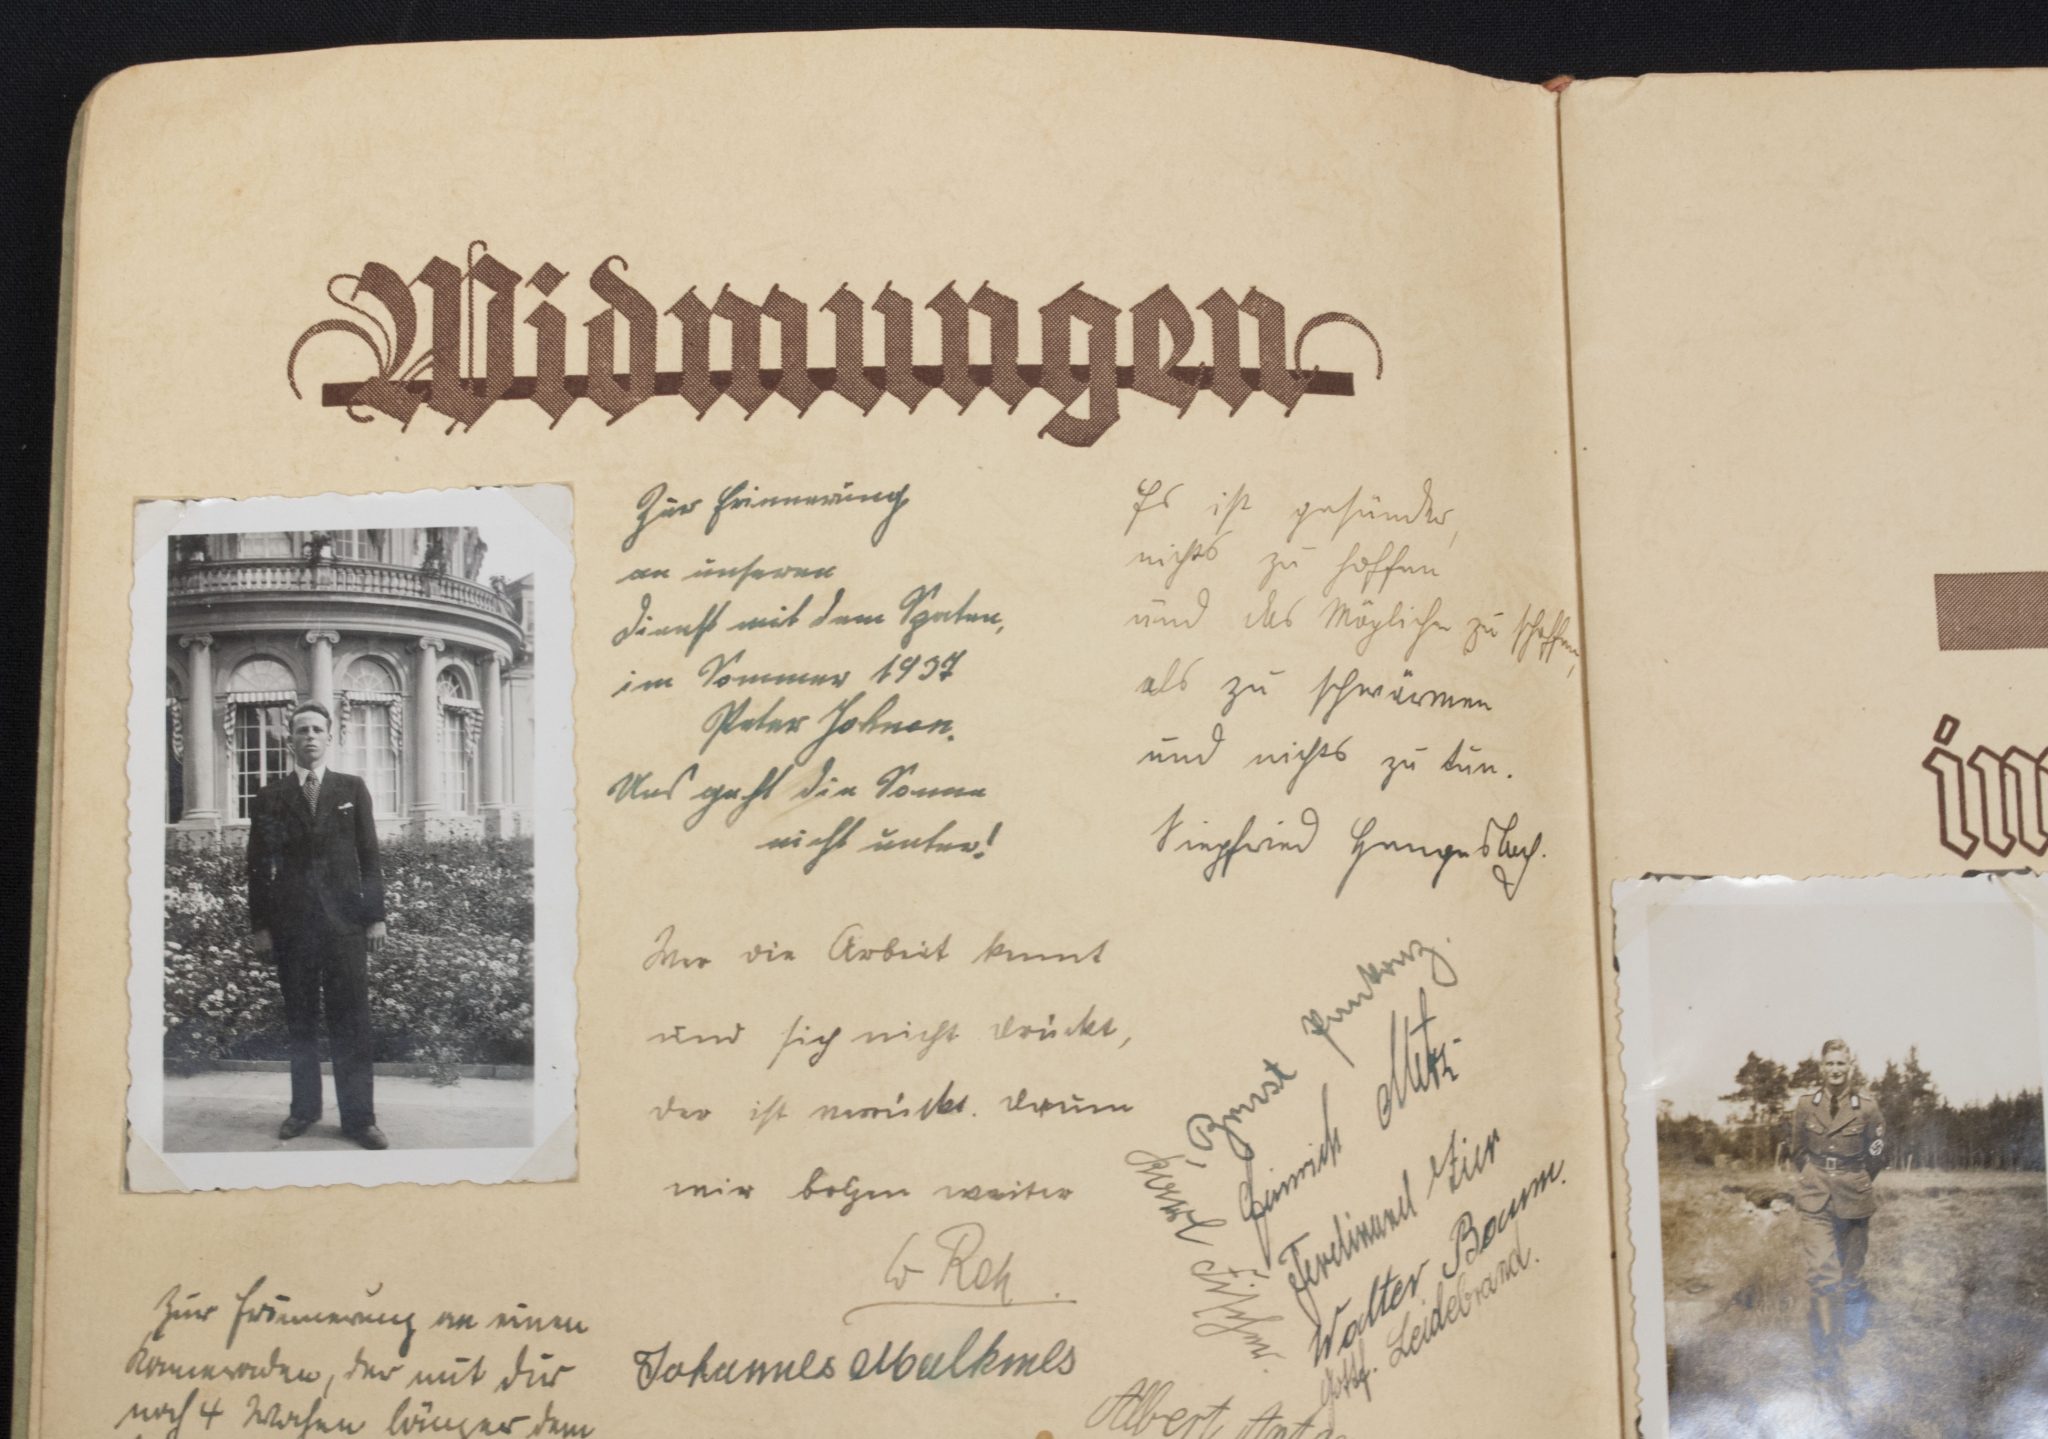 Widmungen
Zur Erinnerung
an unseren
Dienst mit dem Spaten,
im Sommer 1937
Peter
Uns geht die Sonne
nicht unter!
Es ist gesünder,
nichts zu hoffen
und das Mögliche zu schaffen,
als zu schwärmen
und nichts zu tun.
Siegfried
Wer die Arbeit kennt
und sich nicht drückt,
der ist verrückt. Drum
wir bolzen weiter
Johannes Malkmes
Ernst
Heinrich Metz
Ferdinand Zier
Walter Baum.
Leidebrand.
Albert
Zur Erinnerung an einen
Kameraden, der mit dir
noch 4 Wochen länger dem
im